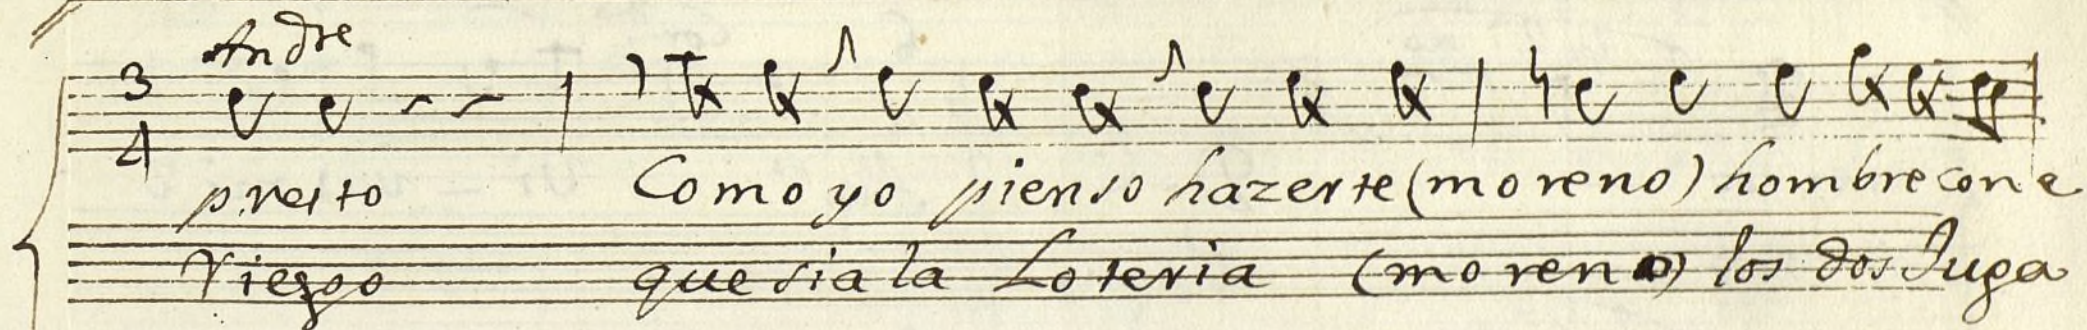 Andte
3
4
presto Como yo pienso hazerte (moreno) hombre con e
riezgo que sia la Loteria (moreno) los dos Juga